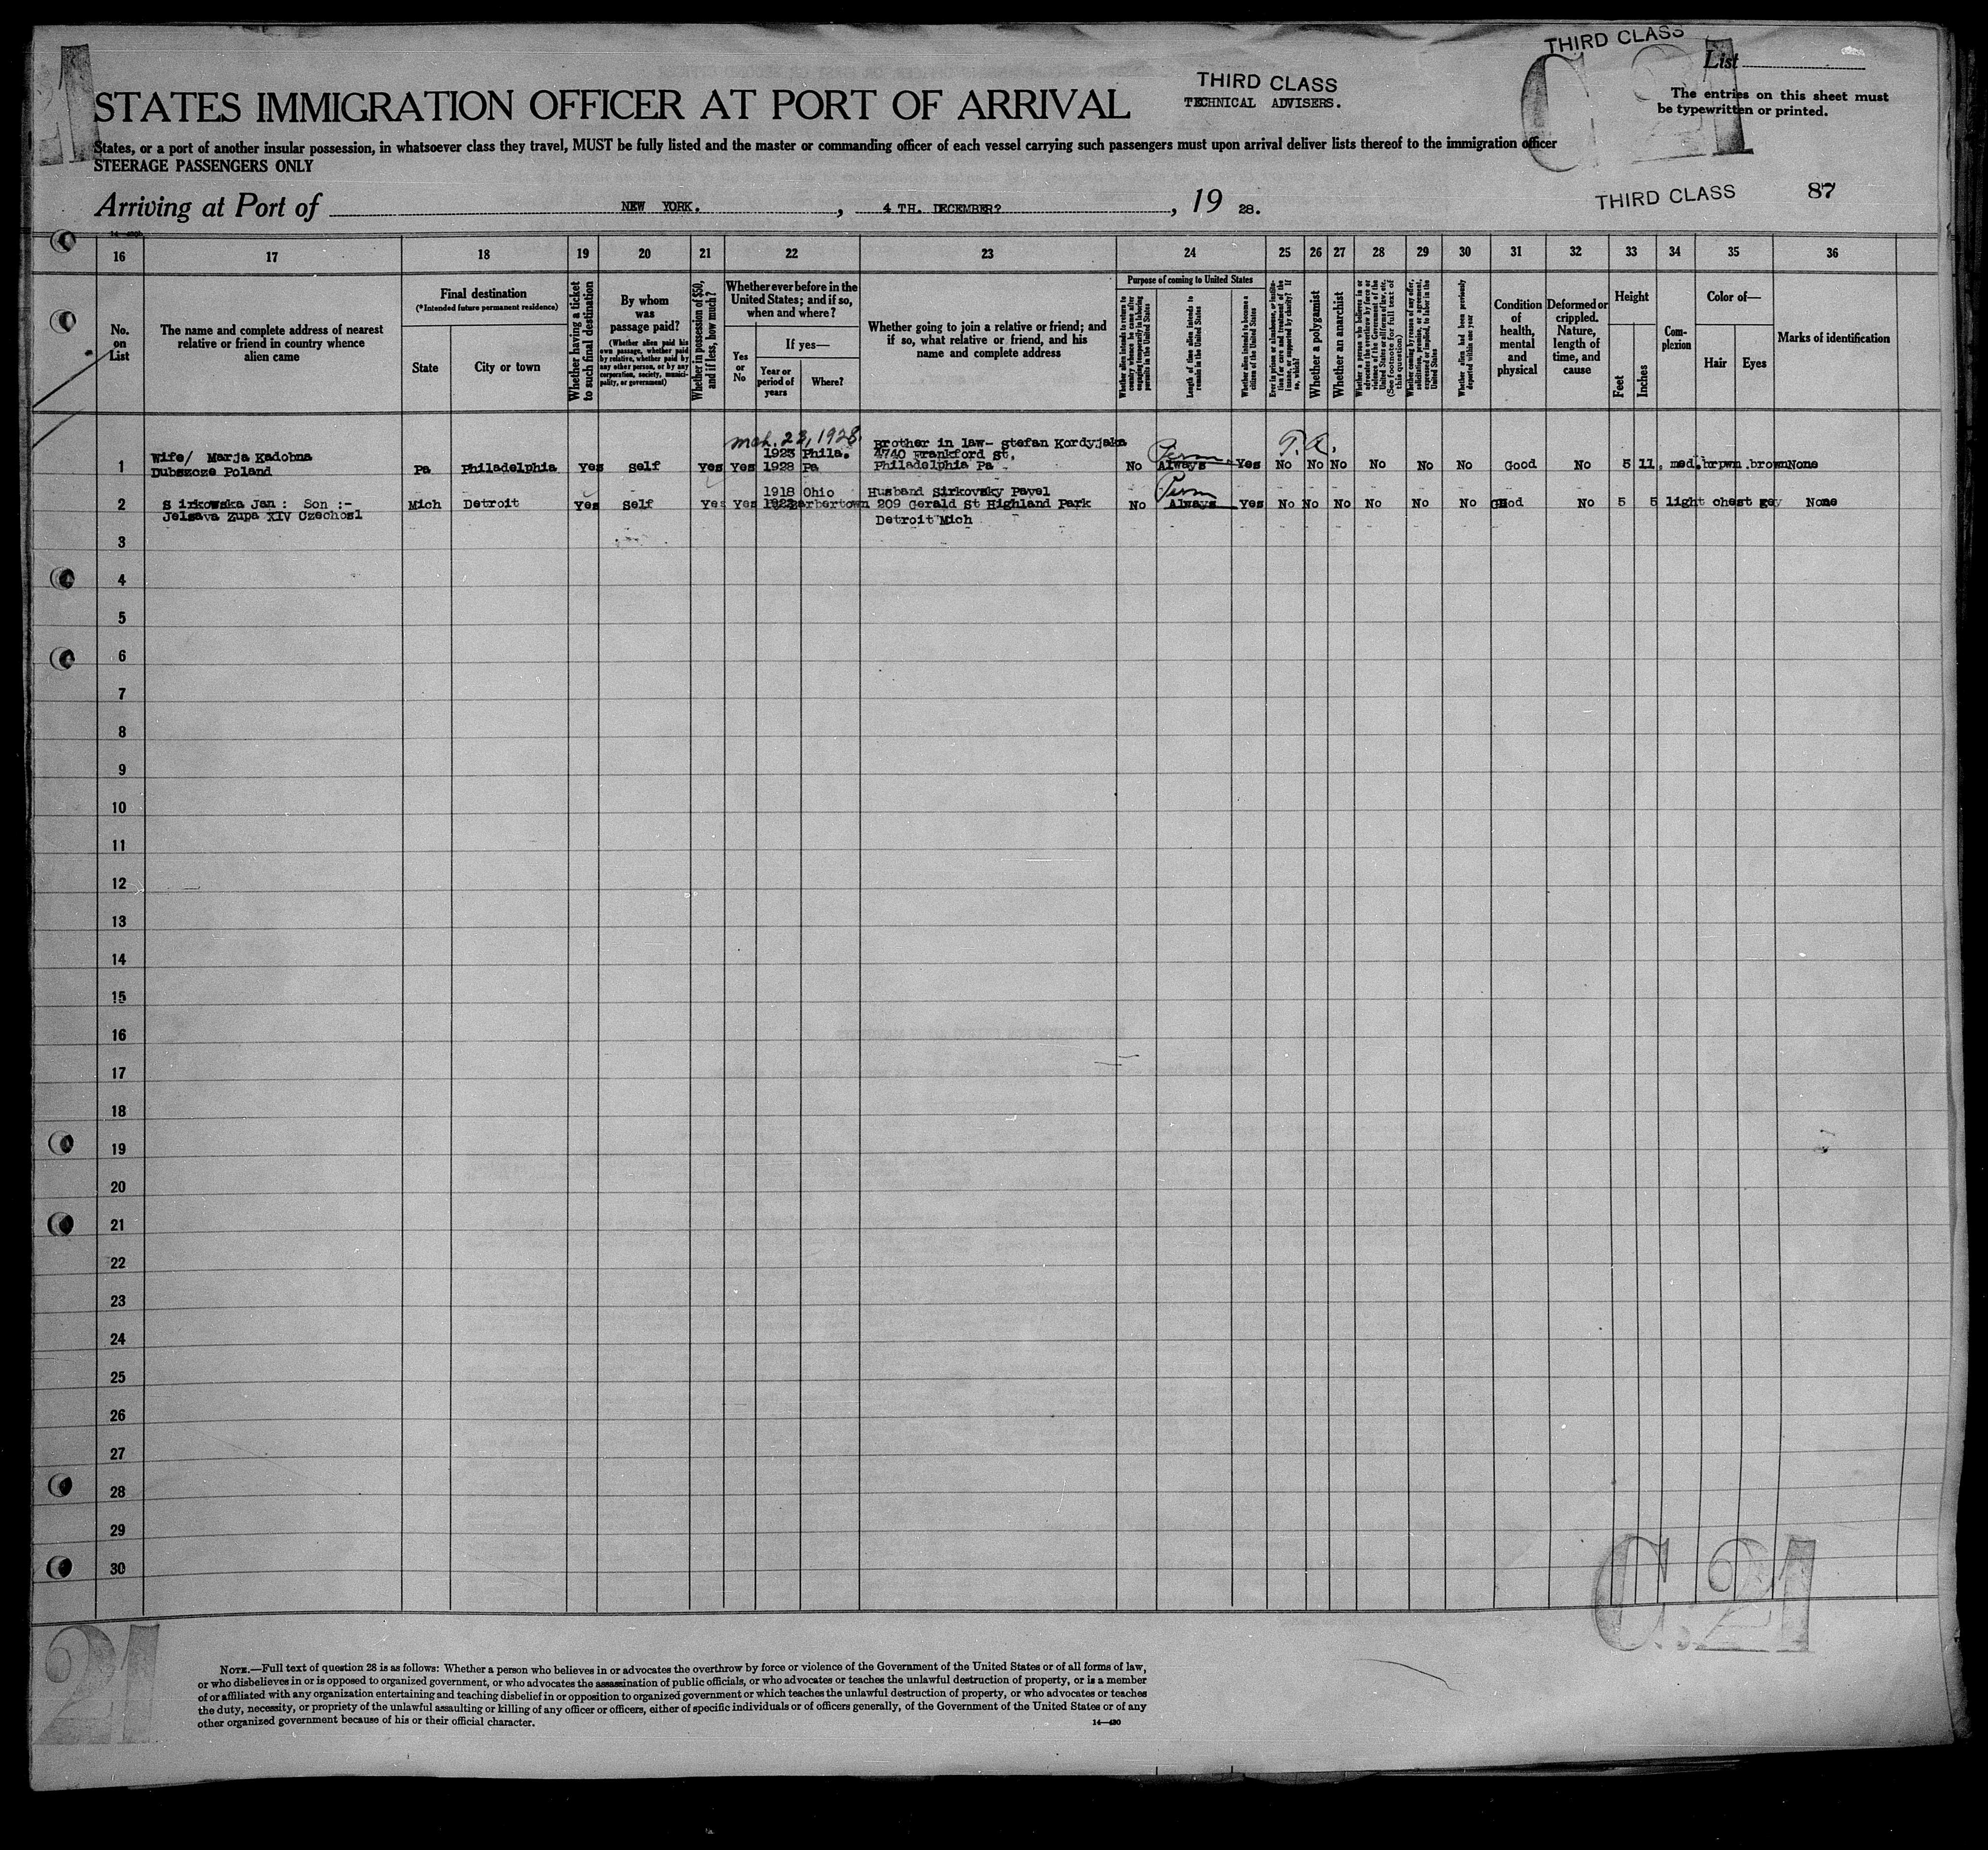 THIRD CLASS
THIRD CLASS
TECHNICAL ADVISERS.
List
C 21
21
The entries on this sheet must
be typewritten or printed.
STATES IMMIGRATION OFFICER AT PORT OF ARRIVAL
States, or a port of another insular possession, in whatsoever class they travel, MUST be fully listed and the master or commanding officer of each vessel carrying such passengers must upon arrival deliver lists thereof to the immigration officer
STEERAGE PASSENGERS ONLY
THIRD CLASS 87
Arriving at Port of NEW YORK. , 4 TH. DECEMBER? , 19 28.
16 17 18 19 20 21 22 23 24 25 26 27 28 29 30 31 32 33 34 35 36
No. on List
The name and complete address of nearest relative or friend in country whence alien came
Final destination
(*Intended future permanent residence)
State
City or town
Whether having a ticket to such final destination
By whom was passage paid?
(Whether alien paid his own passage, whether paid by relative, whether paid by any other person, or by any corporation, society, municipality, or government)
Whether in possession of $50, and if less, how much?
Whether ever before in the United States; and if so, when and where?
Yes or No
If yes—
Year or period of years
Where?
Whether going to join a relative or friend; and if so, what relative or friend, and his name and complete address
Purpose of coming to United States
Whether alien intends to return to country whence he came after engaging temporarily in laboring pursuits in the United States
Length of time alien intends to remain in the United States
Whether alien intends to become a citizen of the United States
Ever in prison or almshouse, or institution for care and treatment of the insane, or supported by charity? If so, which?
Whether a polygamist
Whether an anarchist
Whether a person who believes in or advocates the overthrow by force or violence of the Government of the United States or all forms of law, etc. (See footnote for full text of this question)
Whether coming by reason of any offer, solicitation, promise, or agreement, expressed or implied, to labor in the United States
Whether alien had been previously deported within one year
Condition of health, mental and physical
Deformed or crippled. Nature, length of time, and cause
Height
Feet
Inches
Complexion
Color of—
Hair
Eyes
Marks of identification
mch. 23, 1928 Brother in law- stefan Kordyjaka Perm. T.A.
Wife/ Marja Kadobna 1923 Phila. 4740 Frankford St.
1 Dubszcze Poland Pa Philadelphia Yes Self Yes Yes 1928 Pa Philadelphia Pa No Always Yes No No No No No No Good No 5 11. med. brpwn .brown None
1918 Ohio Husband Sirkovsky Pavel Perm
2 S irkowska Jan : Son :- Mich Detroit Yes Self Yes Yes 1922 arbertown 209 Gerald St Highland Park No Always Yes No No No No No No Good No 5 5 light chest gey None
Jelsava Zupa XIV Czechosl Detroit Mich
3
4
5
6
7
8
9
10
11
12
13
14
15
16
17
18
19
20
21
22
23
24
25
26
27
28
29
30
C.21
21
NOTE.—Full text of question 28 is as follows: Whether a person who believes in or advocates the overthrow by force or violence of the Government of the United States or of all forms of law,
or who disbelieves in or is opposed to organized government, or who advocates the assassination of public officials, or who advocates or teaches the unlawful destruction of property, or is a member
of or affiliated with any organization entertaining and teaching disbelief in or opposition to organized government or which teaches the unlawful destruction of property, or who advocates or teaches
the duty, necessity, or propriety of the unlawful assaulting or killing of any officer or officers, either of specific individuals or of officers generally, of the Government of the United States or of any
other organized government because of his or their official character.
14—430